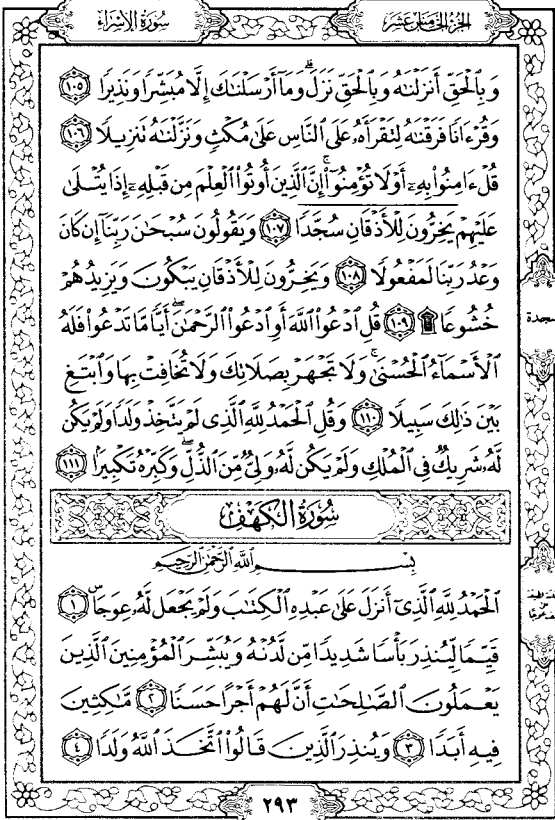 سُورَةُ الإِسْرَاءِ
الجُزْءُ الخَامِسَ عَشَرَ
وَبِٱلْحَقِّ أَنزَلْنَٰهُ وَبِٱلْحَقِّ نَزَلَۗ وَمَآ أَرْسَلْنَٰكَ إِلَّا مُبَشِّرًا وَنَذِيرًا ۝١٠٥
وَقُرْءَانًا فَرَقْنَٰهُ لِتَقْرَأَهُۥ عَلَى ٱلنَّاسِ عَلَىٰ مُكْثٍ وَنَزَّلْنَٰهُ تَنزِيلًا ۝١٠٦
قُلْ ءَامِنُوا۟ بِهِۦٓ أَوْ لَا تُؤْمِنُوٓا۟ۚ إِنَّ ٱلَّذِينَ أُوتُوا۟ ٱلْعِلْمَ مِن قَبْلِهِۦٓ إِذَا يُتْلَىٰ
عَلَيْهِمْ يَخِرُّونَ لِلْأَذْقَانِ سُجَّدًا ۝١٠٧ وَيَقُولُونَ سُبْحَٰنَ رَبِّنَآ إِن كَانَ
وَعْدُ رَبِّنَا لَمَفْعُولًا ۝١٠٨ وَيَخِرُّونَ لِلْأَذْقَانِ يَبْكُونَ وَيَزِيدُهُمْ
خُشُوعًا ۩ ۝١٠٩ قُلِ ٱدْعُوا۟ ٱللَّهَ أَوِ ٱدْعُوا۟ ٱلرَّحْمَٰنَۖ أَيًّا مَّا تَدْعُوا۟ فَلَهُ
ٱلْأَسْمَآءُ ٱلْحُسْنَىٰۚ وَلَا تَجْهَرْ بِصَلَاتِكَ وَلَا تُخَافِتْ بِهَا وَٱبْتَغِ
بَيْنَ ذَٰلِكَ سَبِيلًا ۝١١٠ وَقُلِ ٱلْحَمْدُ لِلَّهِ ٱلَّذِى لَمْ يَتَّخِذْ وَلَدًا وَلَمْ يَكُن
لَّهُۥ شَرِيكٌ فِى ٱلْمُلْكِ وَلَمْ يَكُن لَّهُۥ وَلِىٌّ مِّنَ ٱلذُّلِّۖ وَكَبِّرْهُ تَكْبِيرًۢا ۝١١١
سُورَةُ الكَهْفِ
بِسْمِ ٱللَّهِ ٱلرَّحْمَٰنِ ٱلرَّحِيمِ
ٱلْحَمْدُ لِلَّهِ ٱلَّذِىٓ أَنزَلَ عَلَىٰ عَبْدِهِ ٱلْكِتَٰبَ وَلَمْ يَجْعَل لَّهُۥ عِوَجَاۜ ۝١
قَيِّمًا لِّيُنذِرَ بَأْسًا شَدِيدًا مِّن لَّدُنْهُ وَيُبَشِّرَ ٱلْمُؤْمِنِينَ ٱلَّذِينَ
يَعْمَلُونَ ٱلصَّٰلِحَٰتِ أَنَّ لَهُمْ أَجْرًا حَسَنًا ۝٢ مَّٰكِثِينَ
فِيهِ أَبَدًا ۝٣ وَيُنذِرَ ٱلَّذِينَ قَالُوا۟ ٱتَّخَذَ ٱللَّهُ وَلَدًا ۝٤
سجدة
٢٩٣